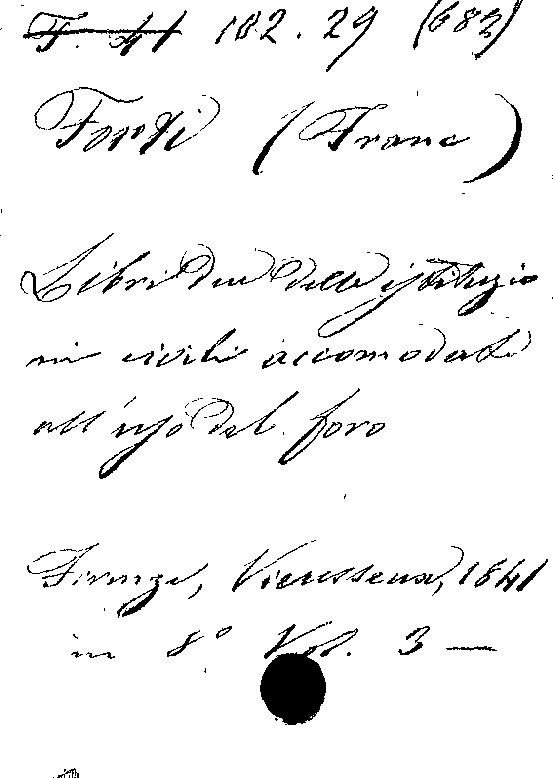 F. 41 182.29 (683)
Forti (Franc)
Libri due delle istituzio
ni civili accomodati
all'uso del foro
Firenze, Vieusseux, 1841
in 8° Vol. 3 —